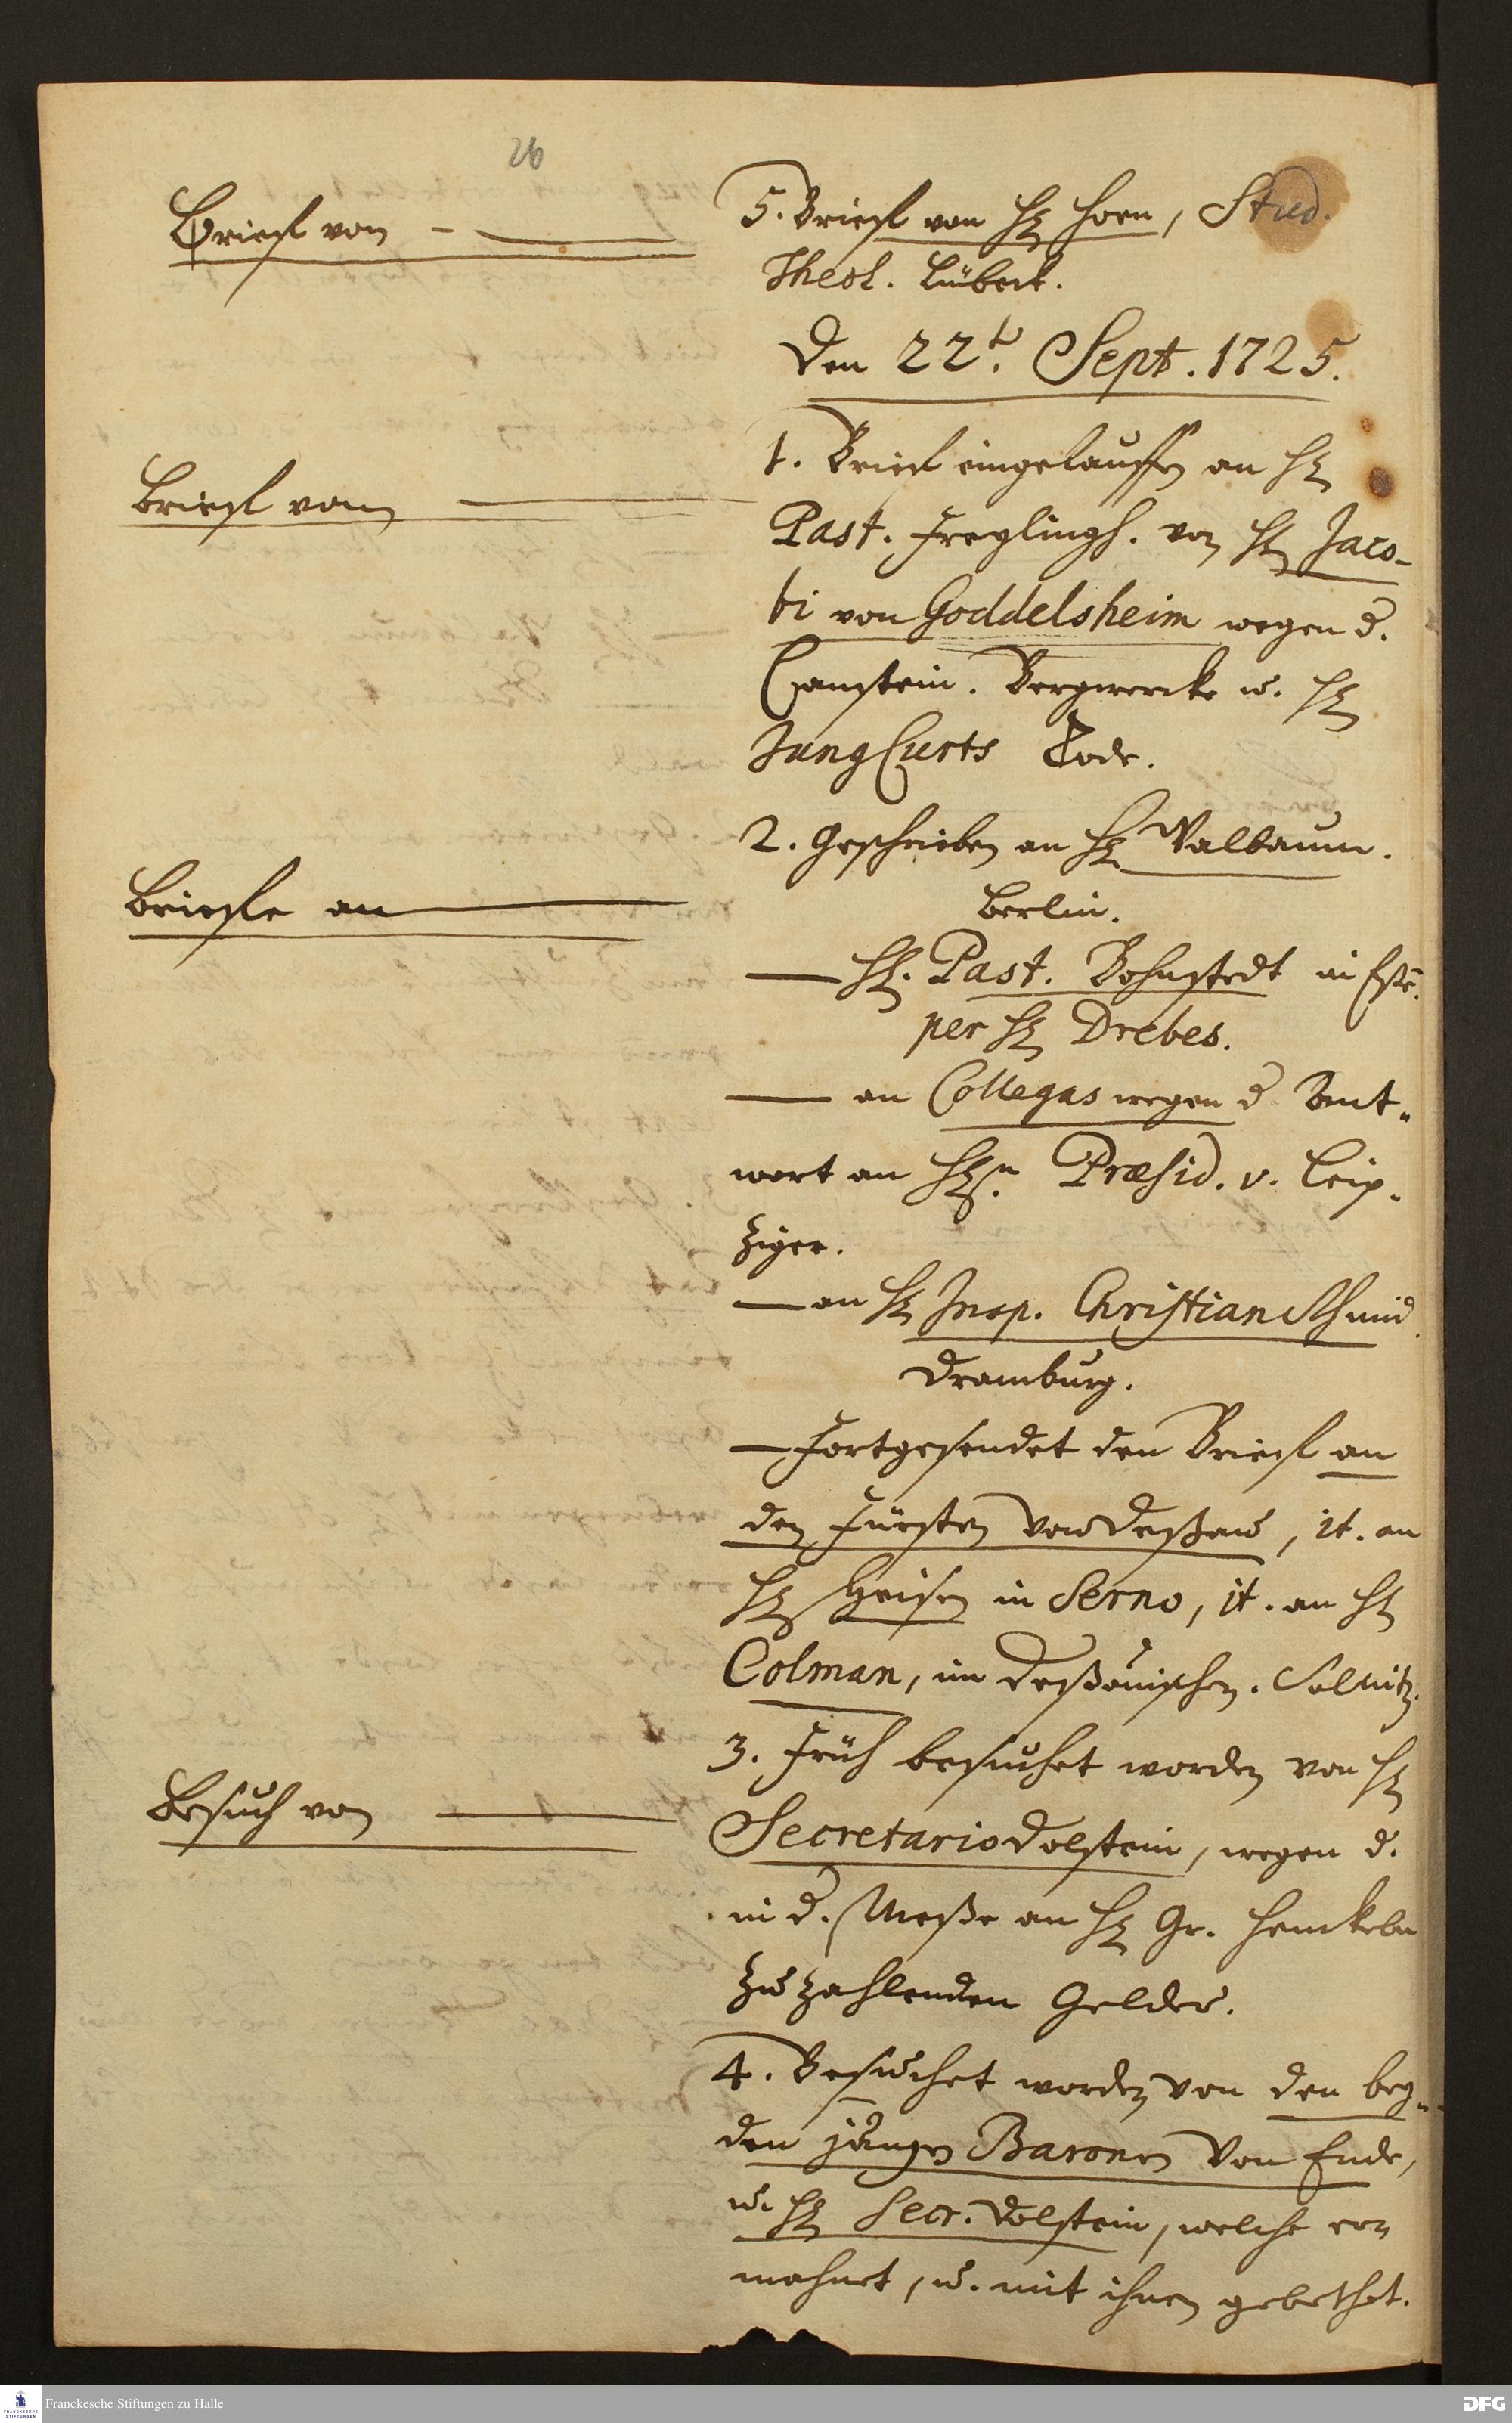 26
Brieff von -
5. Brieff von H Horn, Stud.
Theol. Lübeck.
Den 22t. Sept. 1725.
Brieff von
1. Brieff eingelauffen an H
Past. Freylingh. von H Jaco-
bi von Goddelsheim wegen d.
Canstein. Bergwercke u. H
Jung Curts Tode.
2. Geschrieben an H Walbaum.
Berlin.
Brieffe an
H. Past. Bohnstedt in Eße.
per H Drebes.
an Collegas wegen d Ant-
wort an H Præsid. v. Leip-
ziger.
an H Insp. Christian Schmid
Dramburg.
Fortgesendet den Brieff an
den Fürsten von Deßau, it. an
H in Serno, it. an H
Colman, im Deßauischen.
3. Früh besuchet worden von H
Besuch von
Secretario Dolstein, wegen d.
in d. Meße an H Gr. Henckeln
zu zahlenden Gelder.
4. Besuchet worden von den bey-
den jungen Baronen von Ende,
u. H Secr. Dolstein, welche er
mahnet, u. mit ihnen gebethet.
Franckesche Stiftungen zu Halle
DFG